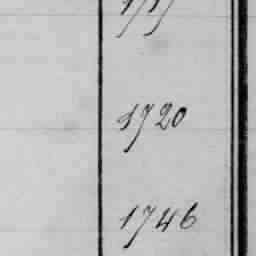 1720
1746